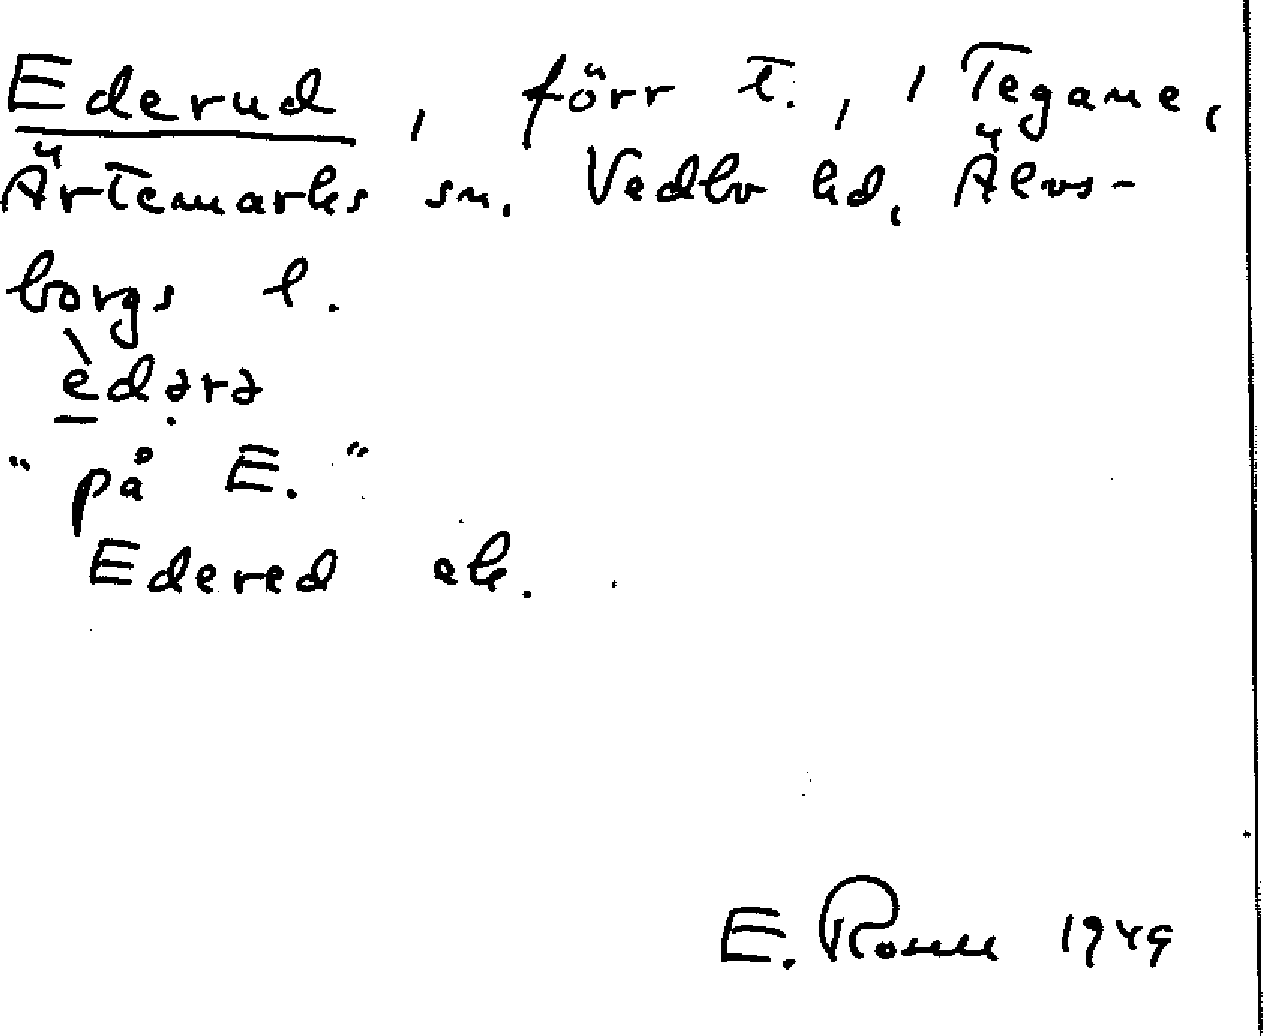 Ederud, förr t., i Tegane,
Ärtemarks sn. Vedbo hd, Älvs-
borgs l.
èdərə
"på E."
Edered ek.
E. 1949